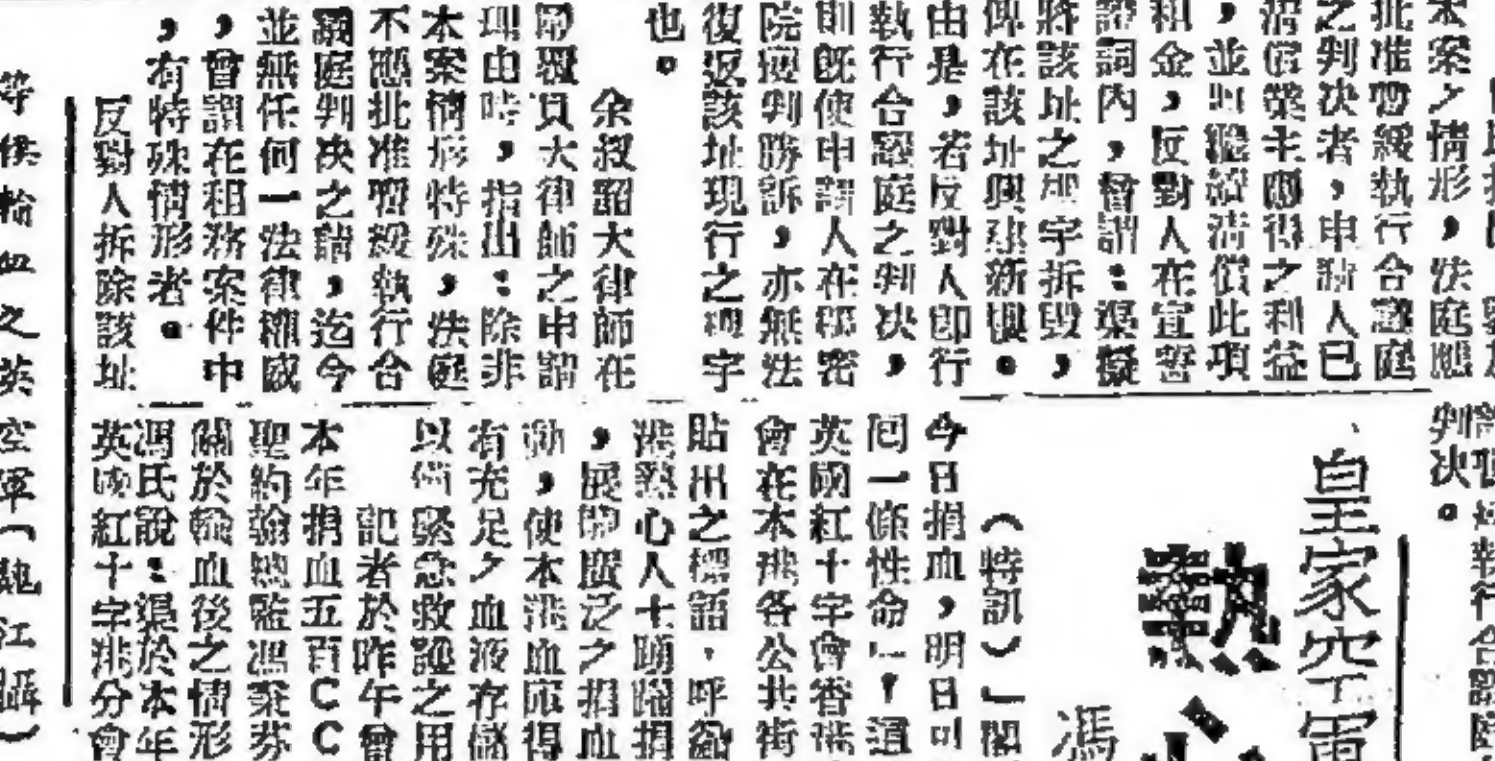 本案之情形，法庭應
批准暫緩執行合議庭
之判决者，申請人已
清償業主應得之利益
，並
租金，反對人在宣誓
證詞內，曾謂：渠擬
將該址之現宇拆毀，
俾在該址興建新樓。
由是，若反對人卽行
執行合議庭之判决，
則旣使申請人在樞密
院獲判勝訴，亦無法
復返該址現行之現宇
也。
余叔韶大律師在
答覆貝大律師之申請
理由時，指出：除非
本案情形特殊，法庭
不應批准暫緩執行合
議庭判决之請，迄今
並無任何一法律權威
，曾謂在租務案件中
，有特殊情形者。
反對人拆除該址
判决。
皇家空軍
熱心
馮
（特訊）「
今日捐血，明日可
同一條性命」！這
英國紅十字會香港
會在本港各公共街
貼出之標語，呼籲
港熱心人士踴躍捐
，展開廣泛之捐血
動，使本港血庫得
有充足之血液存儲
以備緊急救護之用
記者於昨午曾
本年捐血五百CC
聖約翰總監馮秉芬
關於輸血後之情形
馮氏說：渠於本年
英國紅十字港分會
等候輸血之英空軍（魏江攝）